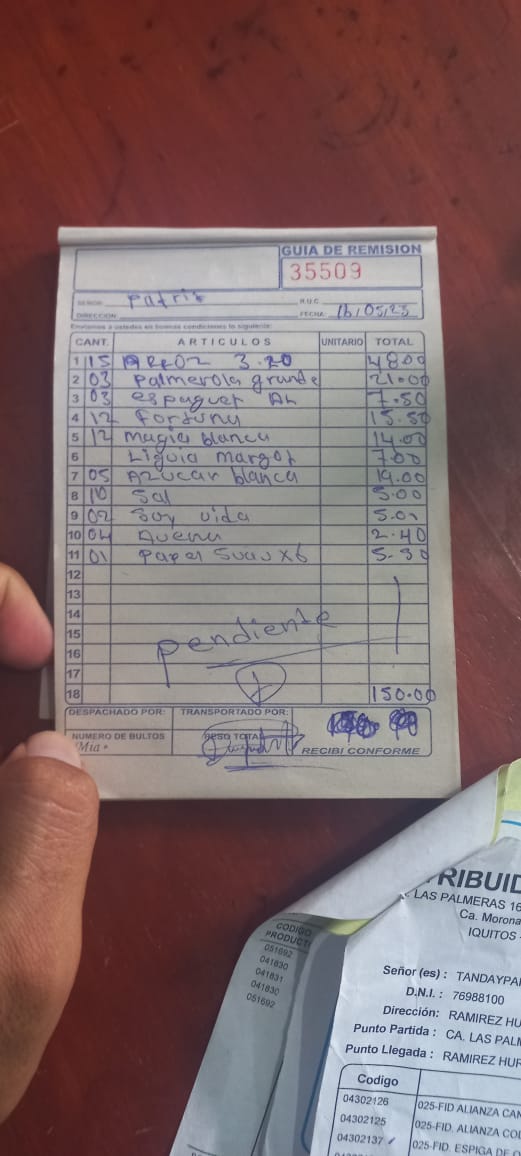 GUIA DE REMISION
35509
SEÑOR: Patris R.U.C.
DIRECCION: FECHA: 16/05/23
Enviamos a ustedes en buenas condiciones lo siguiente:
CANT. ARTICULOS UNITARIO TOTAL
1 15 ARROZ 3.20 48.00
2 03 Palmerola grande 21.00
3 03 espaguet AL 7.50
4 12 fortuna 15.50
5 12 magia blanca 14.00
6 Liguia margot 7.00
7 05 Azucar blanca 19.00
8 10 Sal 5.00
9 02 Soy vida 5.00
10 04 Avena 2.40
11 01 Papel Suav x6 5.30
12
13
14
15 pendiente
16
17
18 150.00
DESPACHADO POR: TRANSPORTADO POR:
NUMERO DE BULTOS PESO TOTAL RECIBI CONFORME
Mia
RIBUID
LAS PALMERAS 16
Ca. Morona
IQUITOS
CODIGO
PRODUCT
051692
041830
041831
041830
051692
Señor (es) : TANDAYPA
D.N.I. : 76988100
Dirección: RAMIREZ HU
Punto Partida : CA. LAS PALM
Punto Llegada : RAMIREZ HUR
Codigo
04302126 025-FID ALIANZA CAN
04302125 025-FID. ALIANZA CO
04302137 025-FID. ESPIGA DE O